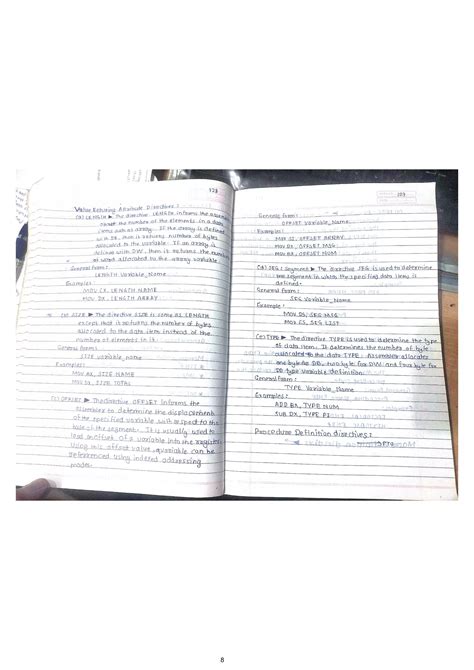 123
Value Returning Attribute Directives:
(a) LENGTH ► The directive LENGTH informs the assembler
about the number of the elements in a data
item such as array. If the array is defined
with DB, then it returns number of bytes
allocated to the variable. If an array is
define with DW, then it returns the number
of word allocated to the array variable
General form:
LENGTH Variable_Name
Examples:
MOV CX, LENGTH NAME
MOV DX, LENGTH ARRAY
(b) SIZE ► The directive SIZE is same as LENGTH
except that it returns the number of bytes
allocated to the data item instead of the
number of elements in it.
General form:
SIZE variable_name
Examples:
MOV AX, SIZE NAME
MOV DX, SIZE TOTAL
(c) OFFSET ► The directive OFFSET informs the
Assembler to determine the displacement
of the specified variable with respect to the
base of the segment. It is usually used to
load an offset of a variable into the register.
Using this offset value, a variable can be
referenced using indexed addressing
modes.
General form:
OFFSET variable_Name
Examples:
MOV SI, OFFSET ARRAY
MOV DX, OFFSET MSG
MOV BX, OFFSET NUM
(d) SEG: Segment ► The directive SEG is used to determine
the segment in which the specified data item is
defined.
General form:
SEG Variable_Name
Example:
MOV DS, SEG MSG
MOV ES, SEG LIST
(e) TYPE ► The directive TYPE is used to determine the type
of data item. It determines the number of byte
allocated to the data TYPE. Assembler allocates
one byte for DB, two byte for DW and four byte for
DD type variable definition.
General form:
TYPE Variable_Name
Examples:
ADD BX, TYPE NUM
SUB DX, TYPE P1
Procedure Definition directives:
8